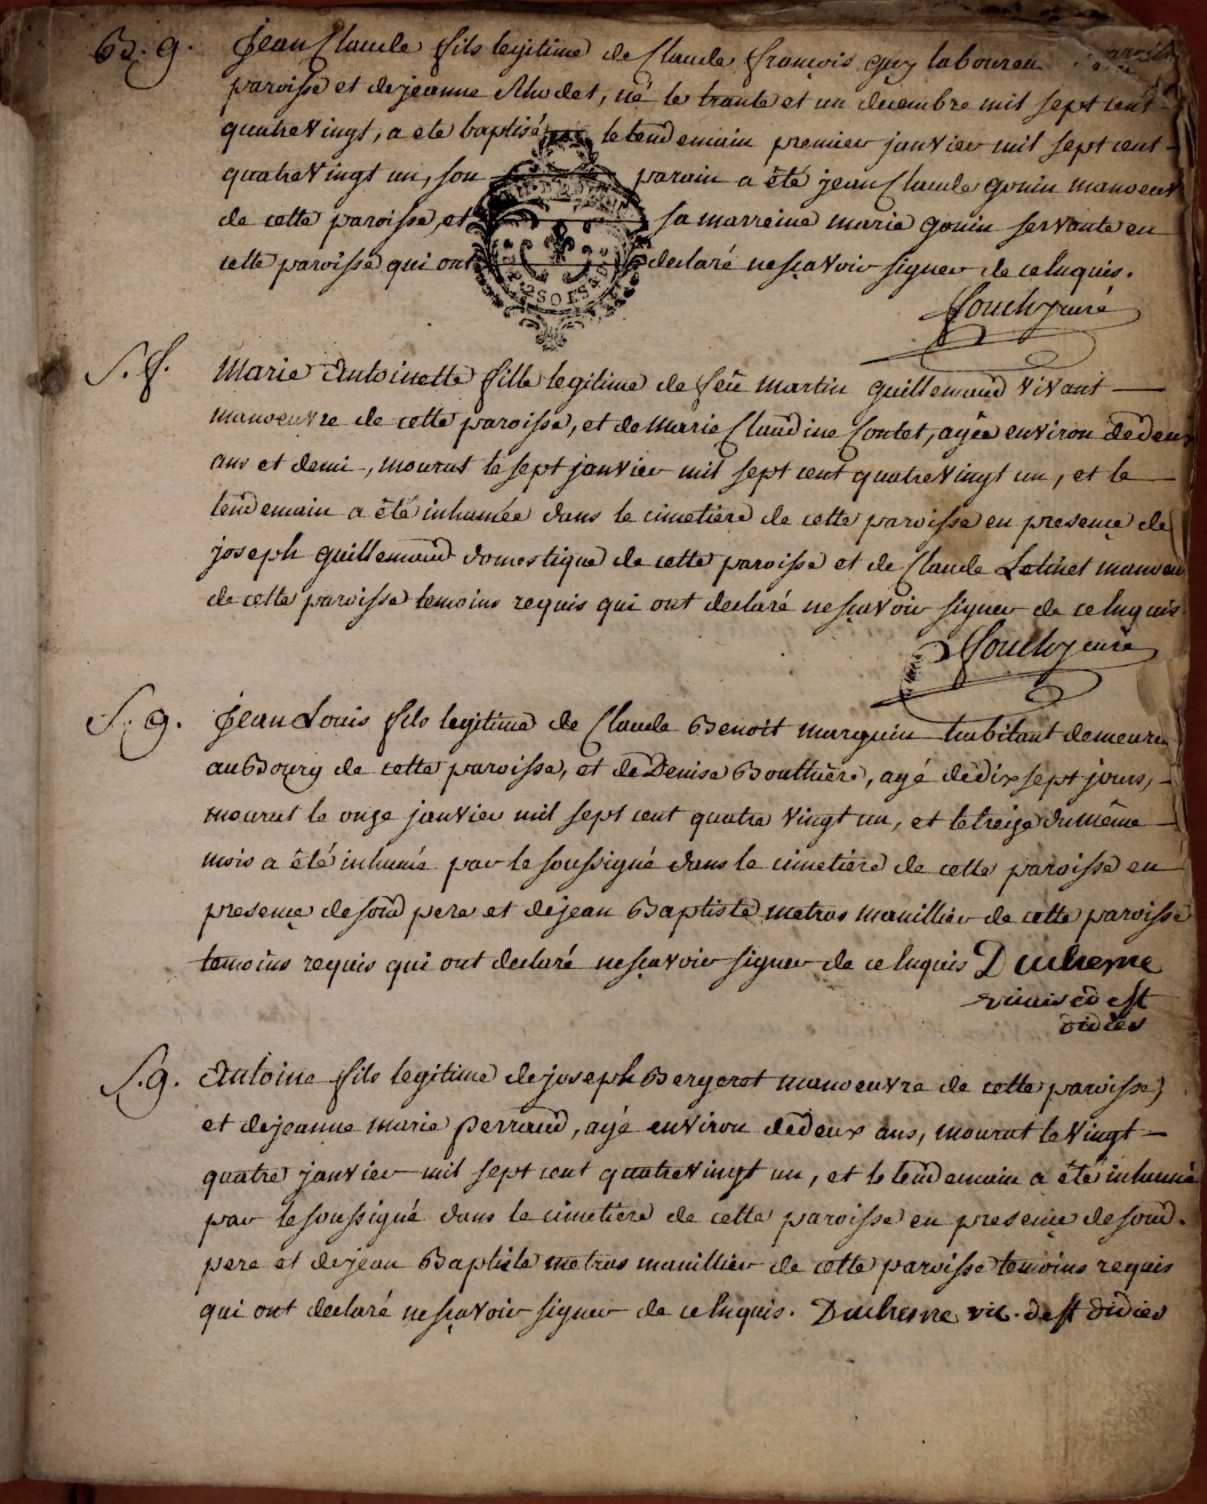 B. g. Jean Claude fils legitime de Claude françois guy laboureu
paroisse et de jeanne Rhodet, né le trante et un decembre mil sept cent
quatre vingt, a eté baptisé le lendemain premier janvier mil sept cent
quatre vingt un, son parain a êté jean Claude gonin manoeuv
de cette paroisse, et sa marreine marie gonin servante en
cette paroisse qui ont declaré ne sçavoir signer de ce enquis.
Souchy curé
S. f. Marie Antoinette fille legitime de feü martin guillemaud vivant
manoeuvre de cette paroisse, et de Marie Claudine Contet, agée environ de deux
ans et demi, mourut le sept janvier mil sept cent quatre vingt un, et le
lendemain a êté inhumée dans le cimetière de cette paroisse en presence de
joseph guillemaud domestique de cette paroisse et de Claude manoeu
de cette paroisse temoins requis qui ont declaré ne sçavoir signer de ce enquis
Souchy curé
S. g. Jean Louis fils legitime de Claude Benoit marguin habitant demeuran
au Bourg de cette paroisse, et de Denise Bouthiere, agé de dix sept jours,
mourut le onze janvier mil sept cent quatre vingt un, et le treize du même
mois a êté inhumé par le soussigné dans le cimetière de cette paroisse en
presence de son pere et de jean Baptiste metras manillier de cette paroisse
temoins requis qui ont declaré ne sçavoir signer de ce enquis Duchesne
vicaire de st
didier
S. g. Antoine fils legitime de joseph Bergerot manoeuvre de cette paroisse,
et de jeanne marie perraud, agé environ de deux ans, mourut le vingt
quatre janvier mil sept cent quatre vingt un, et le lendemain a êté inhumé
par le soussigné dans le cimetière de cette paroisse en presence de son
pere et de jean Baptiste metras manillier de cette paroisse temoins requis
qui ont declaré ne sçavoir signer de ce enquis. Duchesne vic. de st didier